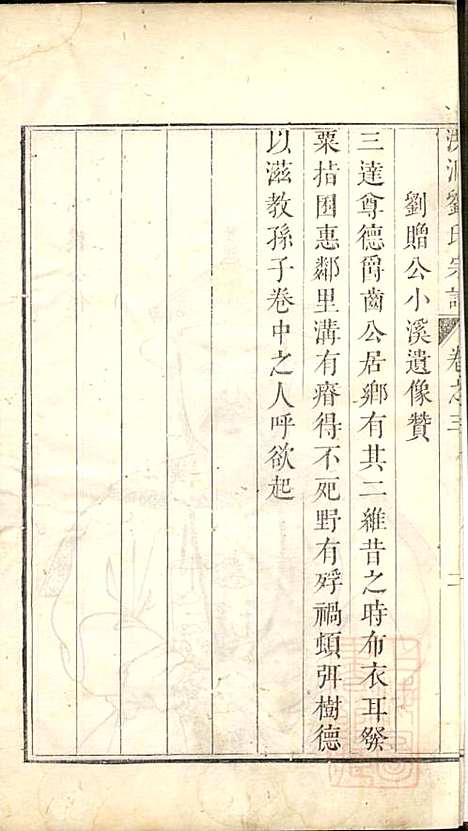 劉氏宗譜 卷之三
劉贈公小溪遺像贊
三達尊德爵齒公居鄉有其二維昔之時布衣耳發
粟指囷惠鄰里溝有瘠得不死野有殍禍頓弭樹德
以滋教孫子卷中之人呼欲起